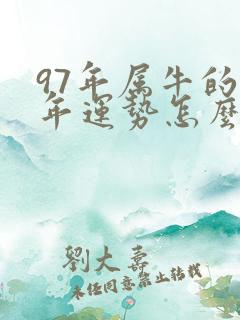 97年属牛的
年运势怎麽
刘大寿
未经同意禁止转载